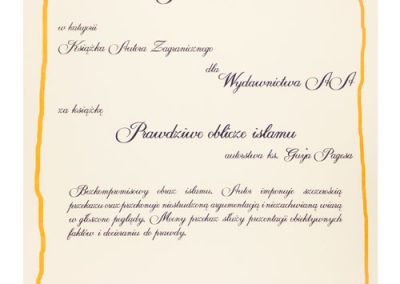 w kategorii
Książka Autora Zagranicznego
dla
Wydawnictwa AA
za książkę
Prawdziwe oblicze islamu
autorstwa ks. Guya Pagesa
Bezkompromisowy obraz islamu. Autor imponuje szczerością
przekazu oraz przekonuje niestrudzoną argumentacją i niezachwianą wiarą
w głoszone poglądy. Mocny przekaz służy prezentacji obiektywnych
faktów i docieraniu do prawdy.